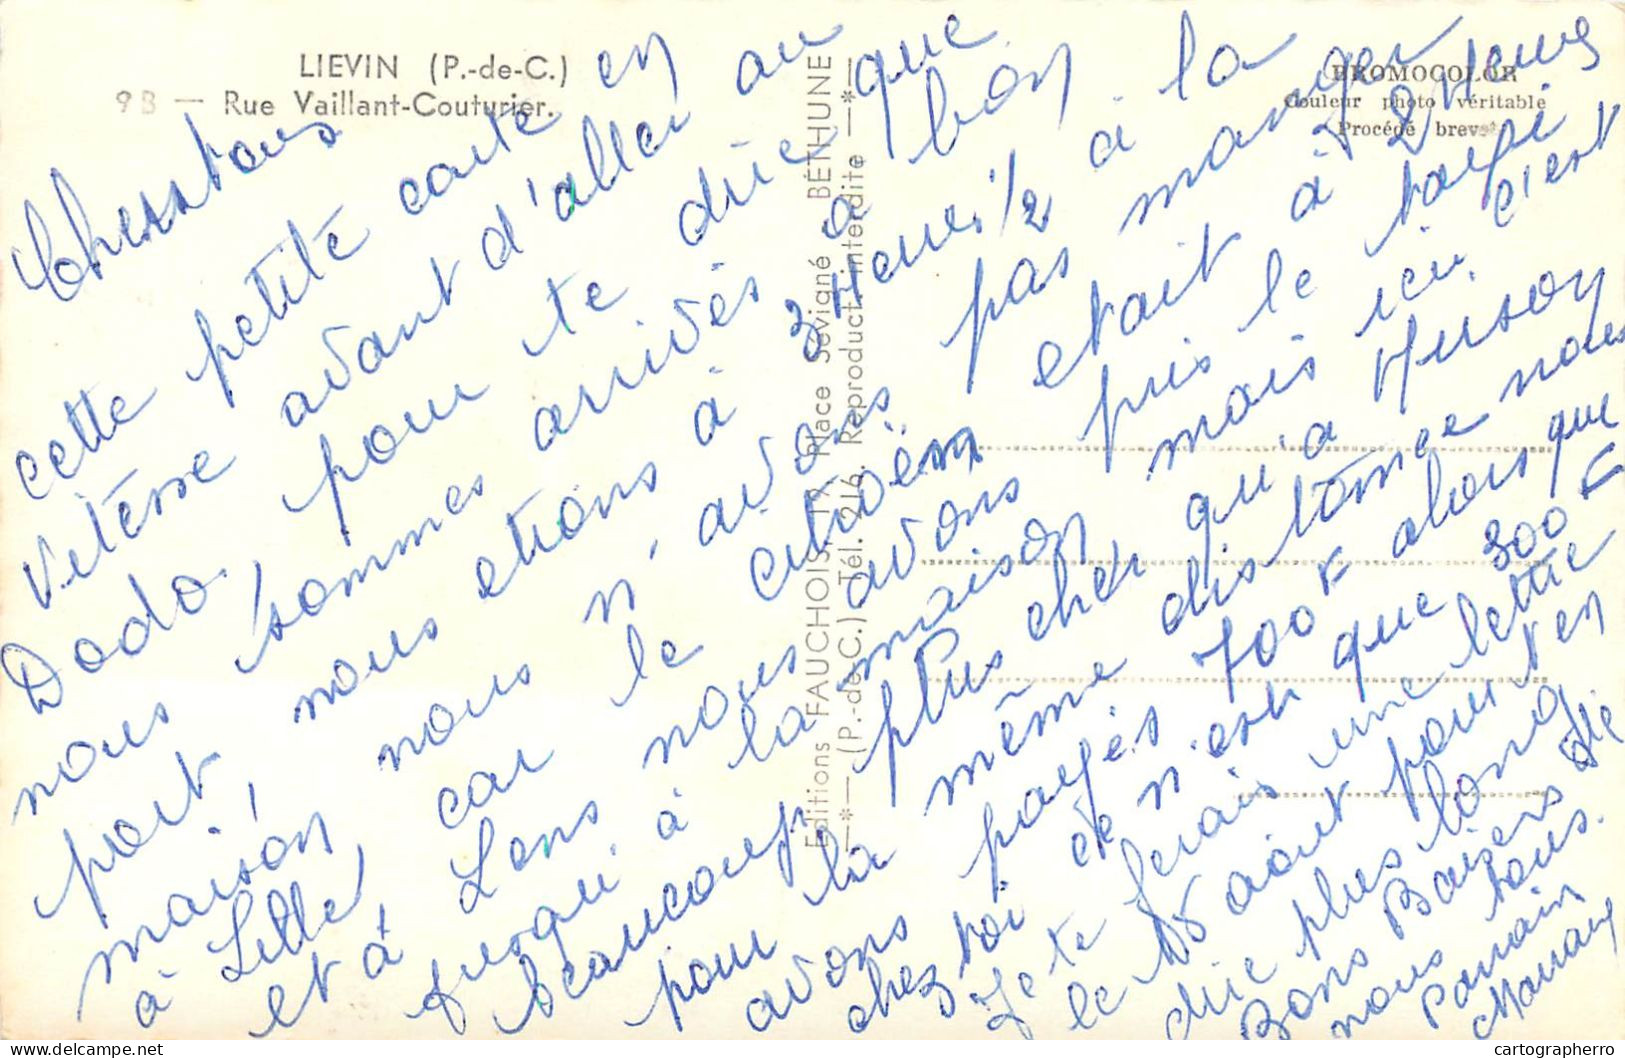 LIEVIN (P.-de-C.)
9B — Rue Vaillant-Couturier.
BROMOCOLOR
Couleur photo véritable
Procédé breveté
Editions FAUCHOIS, 17, Place Sévigné BÉTHUNE
—*— (P.-de-C.) Tél. 216. Reproduct. interdite —*—
Chers tous
cette petite carte en
vitesse avant d'aller au
Dodo. pour te dire que
nous sommes arrivés à bon
port, nous etions à 3 Heures 1/2 à la
maison, nous n'avons pas manger
à Lille, car le citroën etait à 2 Heures
et à Lens nous avons pris le taxi
jusqu'à la maison mais ici, c'est
beaucoup plus cher qu'a Huson
pour la même distance nous
avons payés 700F alors que
chez toi ce n'est que 300F
Je te ferais une lettre
le 15 août pour t'en
dire plus long
Bons Baisers de
nous tous.
Parrain
Maman
cartographerro